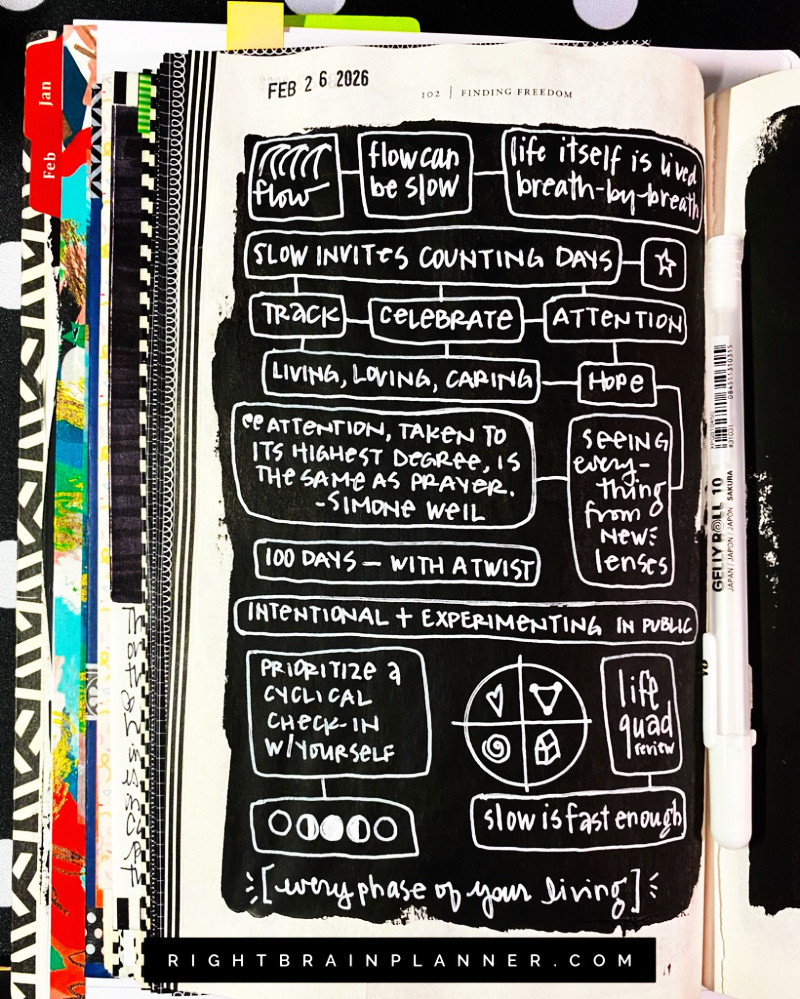 Jan
Feb
FEB 26 2026
102 | FINDING FREEDOM
flow
flow can
be slow
life itself is lived
breath-by-breath
SLOW INVITES COUNTING DAYS
TRACK
CELEBRATE
ATTENTION
LIVING, LOVING, CARING
HOPE
"ATTENTION, TAKEN TO
ITS HIGHEST DEGREE, IS
THE SAME AS PRAYER.
-SIMONE WEIL
SEEING
every-
thing
from
NEW
lenses
100 DAYS — WITH A TWIST
INTENTIONAL + EXPERIMENTING IN PUBLIC
PRIORITIZE a
CYCLICAL
CHECK-IN
W/YOURSELF
life
quad
review
slow is fast enough
[every phase of your living]
GELLY ROLL 10 SAKURA
JAPAN / JAPON / JAPÓN
#31031
084511310315
RIGHTBRAINPLANNER.COM